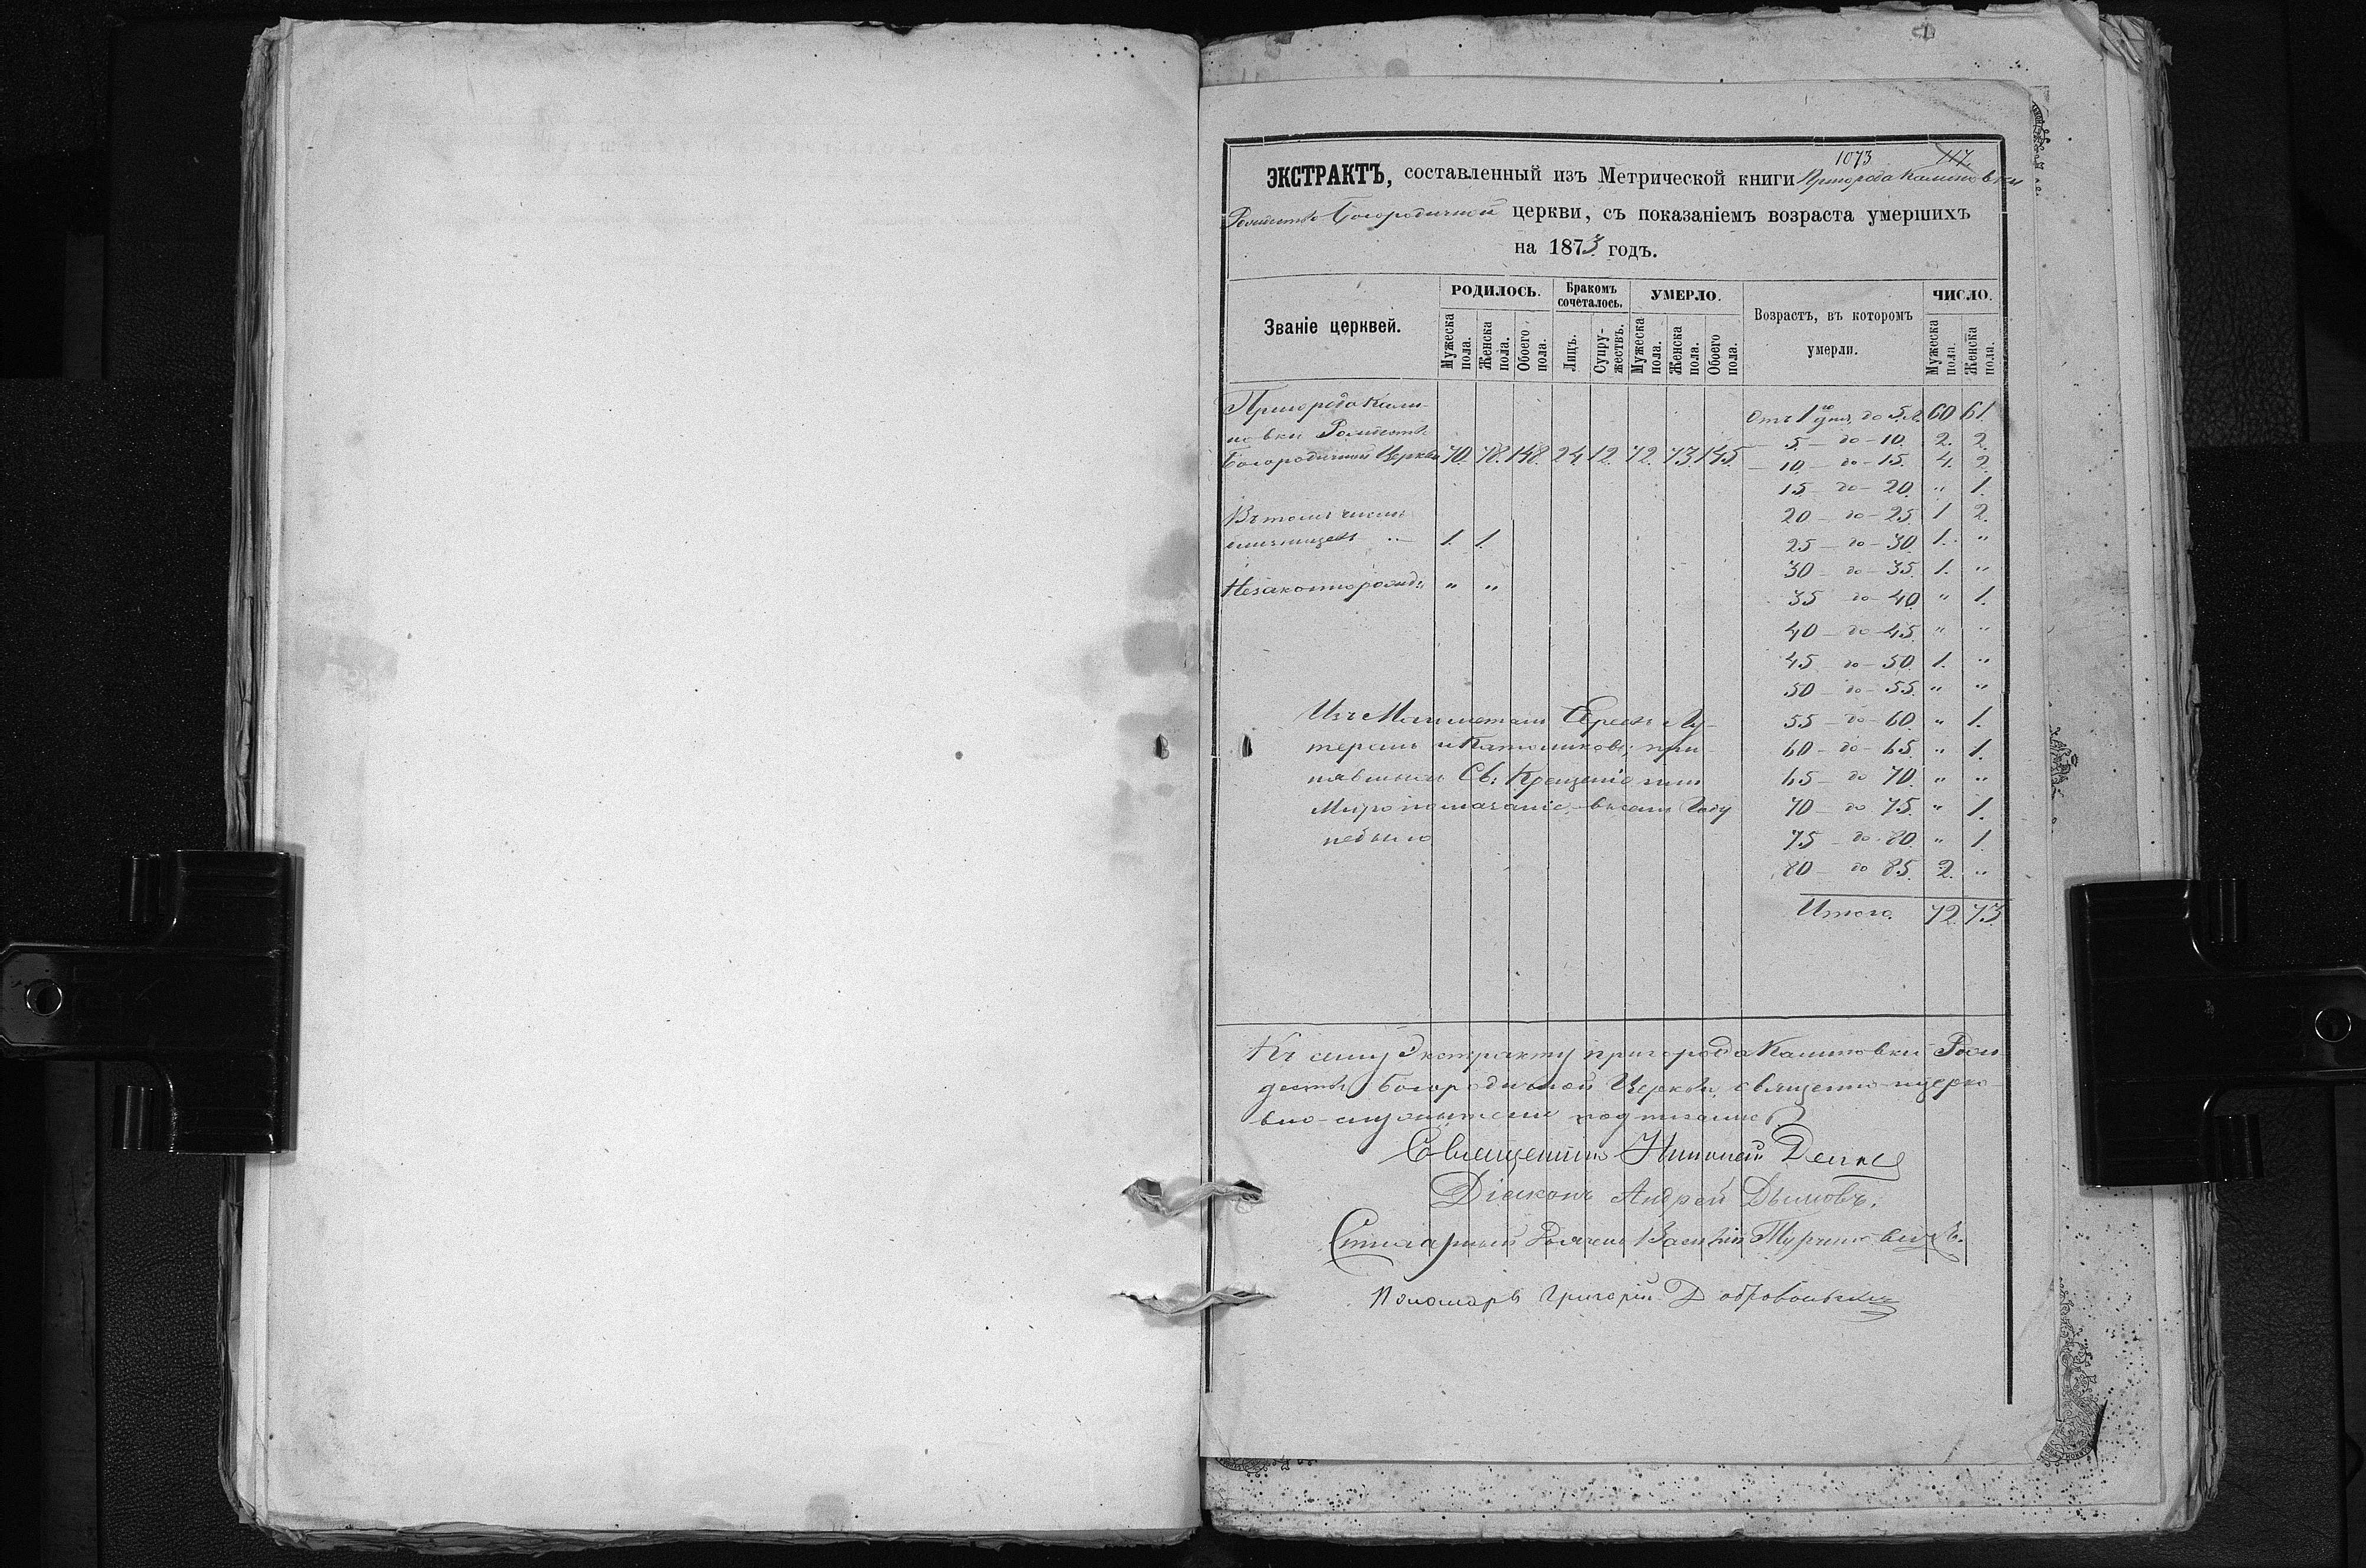 1073 117.
ЭКСТРАКТЪ, составленный изъ Метрической книги Пригорода Калиновки
Рождество Богородичной церкви, съ показаніемъ возраста умершихъ
на 1873 годъ.
Званіе церквей. РОДИЛОСЬ. Бракомъ сочеталось. УМЕРЛО. Возрастъ, въ которомъ умерли. ЧИСЛО.
Мужеска пола. Женска пола. Обоего пола. Лицъ. Супружествъ. Мужеска пола. Женска пола. Обоего пола. Мужеска пола. Женска пола.
Пригорода Кали-
новки Рождество
Богородичной Церкви 70. 78. 148. 24. 12. 72. 73. 145.
Въ томъ числѣ
близнецовъ " — 1. 1.
Незаконнорожд: " "
Отъ 1го дня до 5 л. 60 61.
— 5 — до — 10. 2. 2.
— 10 — до — 15. 4. 2.
15 — до — 20. " 1.
20 — до — 25. 1 2.
25 — до — 30. 1. "
30 — до — 35. 1. "
35 до — 40. " 1.
40 — до — 45. " "
45 — до — 50. 1. "
50 — до — 55. " "
55 — до — 60. " 1.
60 — до — 65. " 1.
65 — до 70. " "
70 — до 75. " 1.
75 — до — 80. " 1
80 — до 85. 2. "
Итого. 72. 73.
Изъ Магометанъ Евреевъ Лю-
теранъ и Католиковъ; при-
нявшихъ Св: Крещеніе или
Муропомазаніе въ семъ Году
небыло
Къ сему Экстракту пригорода Калиновки Рож-
дество Богородичной Церкви, священно-церко-
вно-служители подписались
Священникъ Николай
Діаконъ Андрей Дымовъ.
Василій
Пономарь Григорій Добровольскій